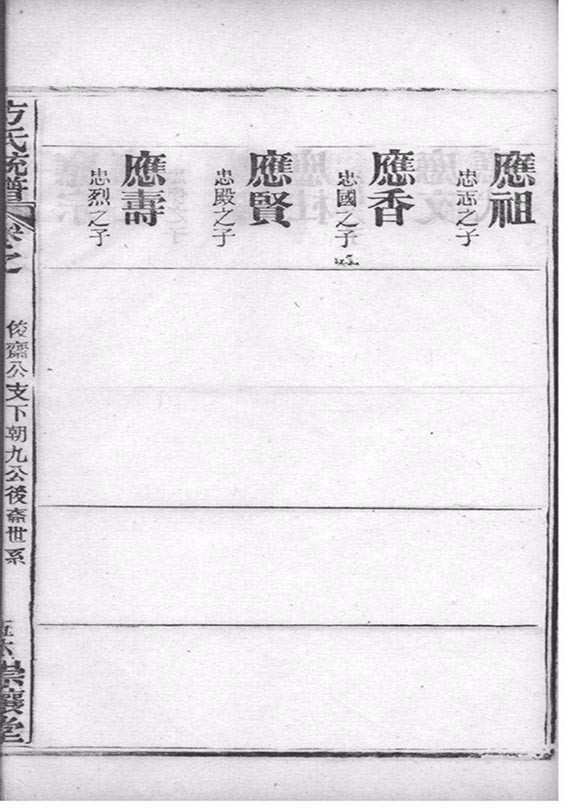 應祖
忠志之子
應香
忠國之子
應賢
忠殿之子
應壽
忠烈之子
方氏統譜
卷之
俊齋公支下朝九公後裔世系
崇讓堂